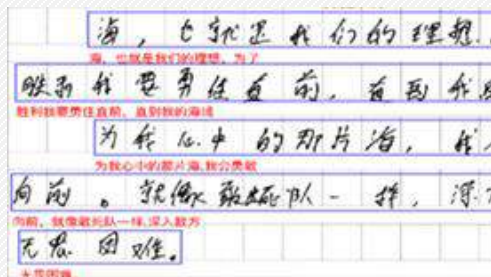 海，也就是我们的理想.
海，也就是我们的理想，为了
胜利我要勇往直前，直到我
胜利我要勇往直前，直到我的海域
为我心中的那片海，我
为我心中的那片海,我会勇敢
向前。就像敢死队一样，深
向前，就像敢死队一样,深入敌方
无畏困难。
无畏困难